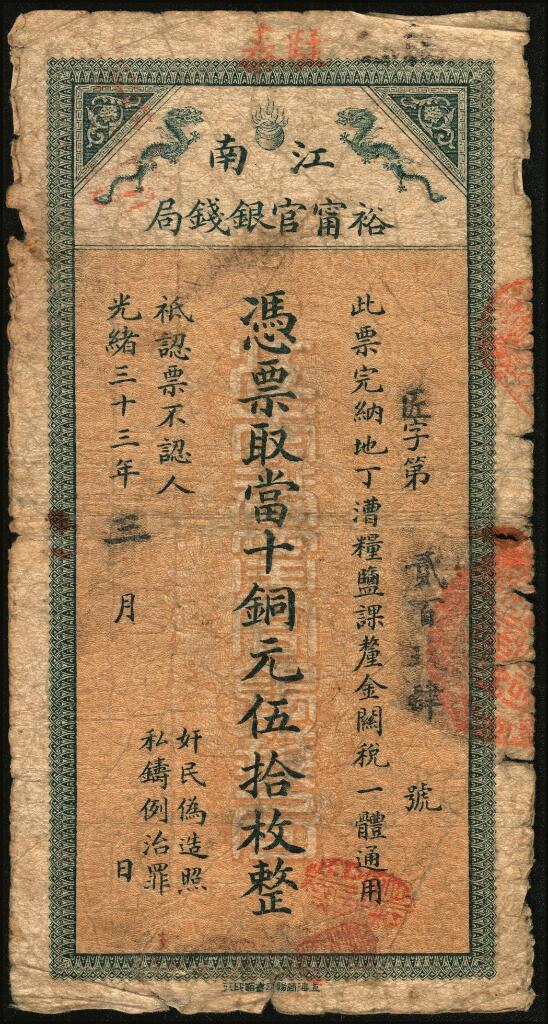 江南
裕甯官銀錢局
字第
貳百
號
此票完納地丁漕糧鹽課釐金關稅一體通用
憑票取當十銅元伍拾枚整
祇認票不認人
光緒三十三年三月 日
奸民偽造照
私鑄例治罪